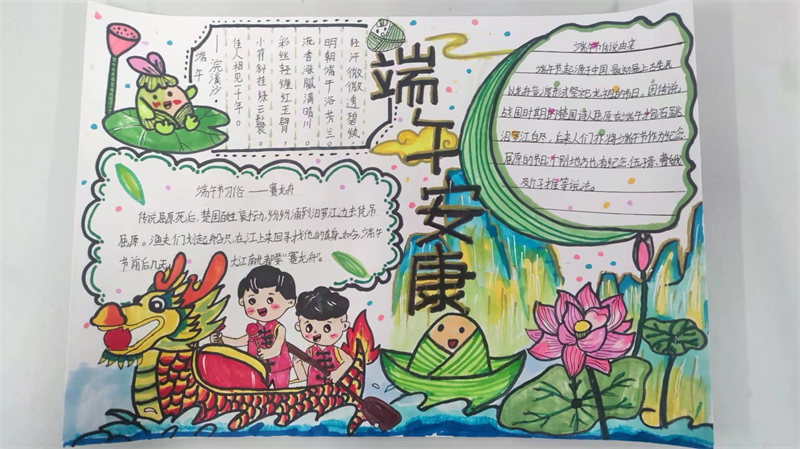 端午安康
浣溪沙·
端午
轻汗微微透碧纨
明朝端午浴芳兰。
流香涨腻满晴川。
彩线轻缠红玉臂,
小符斜挂绿云鬟。
佳人相见一千年。
端午节习俗——赛龙舟
传说屈原死后,楚国百姓哀
屈原。渔夫们划起船只,在江上来回
节前后几天 大江南北都要“赛龙舟”。
端午节传说由来
端午节起源于中国,最初是上古先民
以龙舟竞渡形式祭祀龙祖的节日。因传说
战国时期的楚国诗人屈原在端午
汨罗江自尽,后来人们亦将端午节作为纪念
屈原的节日;个别地方也有纪念伍子胥、曹娥
及介子推等说法。